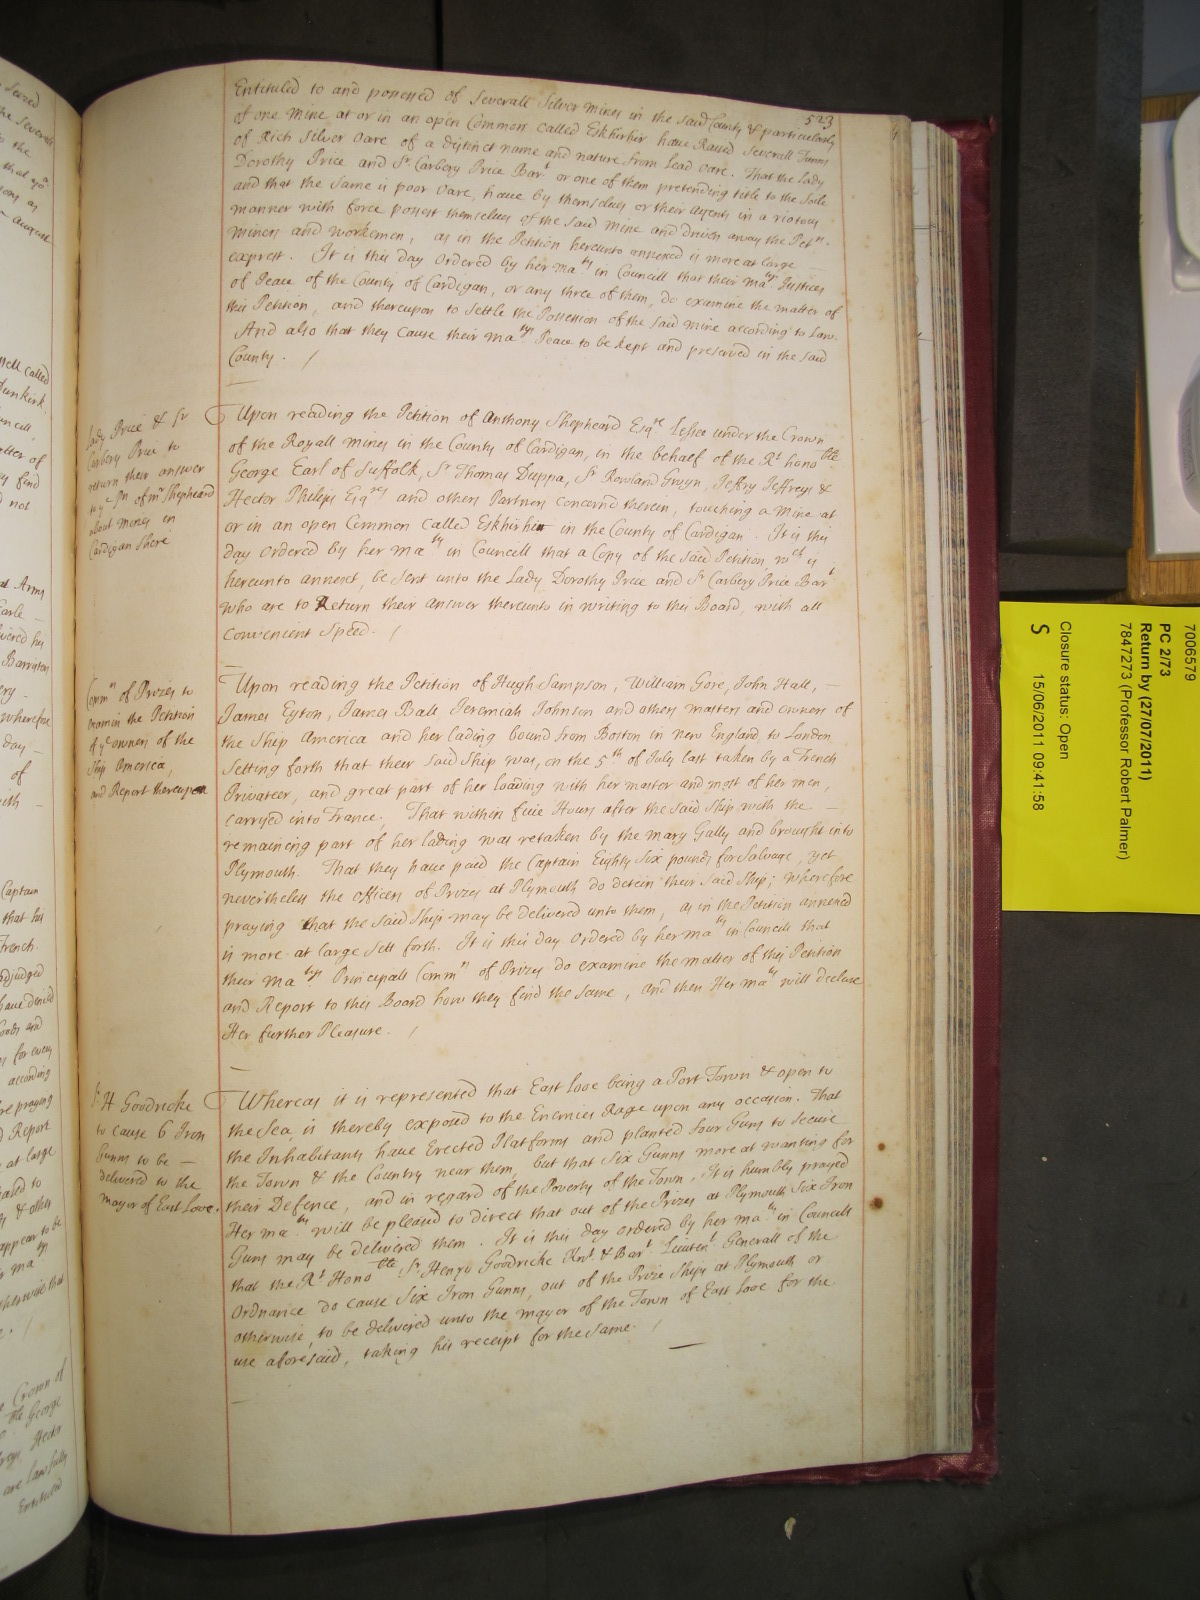 523
Entituled to and possessed of Severall Silver mines in the said County & particularly
of one mine at or in an open Common called Eskhirhir have Raised Severall Tunns
of Rich Silver Oare of a distinct name and nature from Lead Oare. That the Lady
Dorothy Price and Sr. Carbery Price Bart. or one of them pretending title to the Soile
and that the same is poor Oare, have by themselves or their Agents in a riotous
manner with force possest themselves of the said Mine and driven away the Petrs.
miners and workemen, as in the Petition hereunto annexed is more at large
exprest. It is this day Ordered by her Maty in Councill that their Matys Justices
of Peace of the County of Cardigan, or any three of them, do examine the matter of
this Petition, and thereupon to settle the Possession of the said Mine according to Law.
And also that they Cause their Matys Peace to be kept and preserved in the said
County. /
Lady Price & Sr
Carbery Price to
return their answer
to ye Pn of mr Shepheard
about Mines in
Cardigan Shere
Upon reading the Petition of Anthony Shepheard Esqre Lessee under the Crown
of the Royall Mines in the County of Cardigan, in the behalf of the Rt honoble
George Earl of Suffolk, Sr Thomas Duppa, Sr Rowland Gwyn, Jeffry Jeffreys &
Hector Philips Esqres and others Partners Concernd therein, touching a Mine at
or in an open Common called Eskhirhir in the County of Cardigan. It is this
day Ordered by her Maty in Councill that a Copy of the said Petition, wch is
hereunto annext, be sent unto the Lady Dorothy Price and Sr Carbery Price Bart
who are to Return their answer thereunto in writing to this Board, with all
Convenient Speed. /
Commrs of Prizes to
examin the Petition
of ye owners of the
Ship America,
and Report thereupon
Upon reading the Petition of Hugh Sampson, William Gore, John Hall,
James Eyton, James Ball Jeremiah Johnson and others masters and owners of
the Ship America and her lading bound from Boston in New England, to London
Setting forth that their said Ship was, on the 5th of July last taken by a French
Privateer, and great part of her Loading with her master and most of her men,
carryed into France, That within five Hours after the said Ship with the
remaining part of her lading was retaken by the Mary Gally and brought into
Plymouth. That they have paid the Captain Eighty Six pounds for Salvage, yet
nevertheless the officers of Prizes at Plymouth do detein their said Ship; wherefore
praying that the said Ship may be delivered unto them, as in the Petition annexed
is more at large sett forth. It is this day Ordered by her Maty in Councill that
their Matys Principall Commrs of Prizes do examine the matter of this Petition
and Report to this Board how they find the same, and then Her Maty will declare
Her further Pleasure. /
Sr H Goodricke
to cause 6 Iron
Gunns to be
delivered to the
Mayor of East Looe.
Whereas it is represented that East Looe being a Port Town & open to
the Sea, is thereby exposed to the Enemies Rage upon any occasion. That
the Inhabitants have Erected Platforms and planted four Guns to secure
the Town & the Country near them, but that Six Gunns more at wanting for
their Defence, and in regard of the Poverty of the Town, It is humbly prayed
Her Maty will be pleased to direct that out of the Prizes at Plymouth Six Iron
Guns may be delivered them. It is this day ordered by her Maty in Councill
that the Rt Honoble Sr. Henry Goodricke Knt. & Bart. Lieutent Generall of the
Ordnance do cause Six Iron Gunns, out of the Prize Ships at Plymouth or
otherwise, to be delivered unto the Mayor of the Town of East Looe for the
use aforesaid, taking his receipt for the same. /
7006579
PC 2/73
Return by (27/07/2011)
7847273 (Professor Robert Palmer)
Closure status: Open
15/06/2011 09:41:58
S